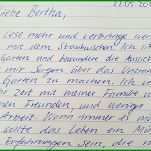 Liebe Bertha,
Lese mehr und verbringe wen
mit dem Staubwischen. Ich si
Garten und bewundere die Aussic
mir Sorgen über das Unkra
Garten zu machen. Ich ve
Zeit mit meiner Familie
Freunden, und wenig
Arbeit. Wann immer es mö
sollte das Leben ein Mu
Erfahrungen sein, die m